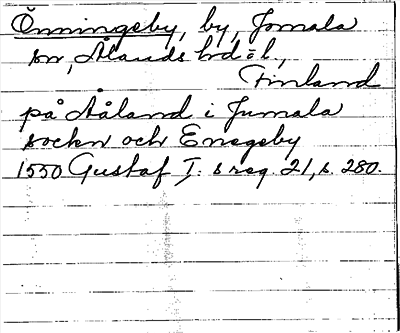 Önningsby, by, Jomala
sn, Ålands hd o l.,
Finland
på Åland i Jumala
sockn och Enegeby
1550 Gustaf I:s reg. 21, s. 280.